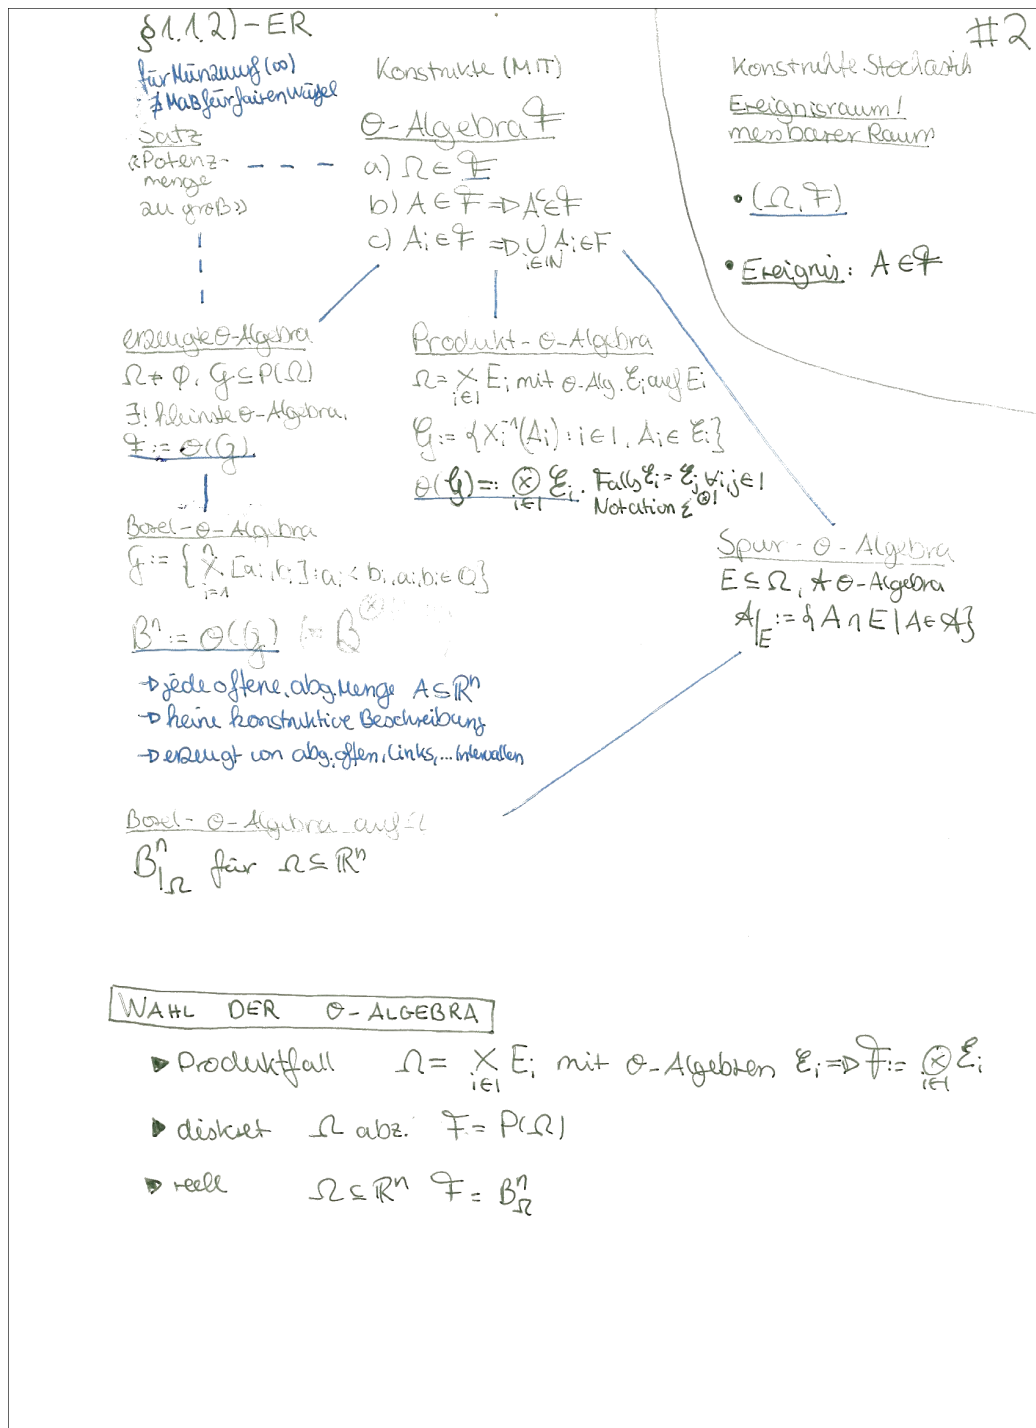 §1.1.2)-ER
#2
für Münzwurf (∞)
∄ Maß für fairen Würfel
Satz
«Potenz-
menge
zu groß»
Konstrukte (MIT)
σ-Algebra F
a) Ω ∈ F
b) A ∈ F ⇒ Aᶜ ∈ F
c) Ai ∈ F ⇒ ⋃ i∈ℕ Ai ∈ F
Konstrukte Stochastik
Ereignisraum!
messbarer Raum
• (Ω, F)
• Ereignis: A ∈ F
erzeugte σ-Algebra
Ω ≠ ∅, G ⊆ P(Ω)
∃! kleinste σ-Algebra,
F := σ(G).
Produkt-σ-Algebra
Ω = × i∈I Ei mit σ-Alg. Ɛi auf Ei
G := {Xi⁻¹(Ai) : i∈I, Ai ∈ Ɛi}
σ(G) =: ⊗ i∈I Ɛi. Falls Ɛi = Ɛj ∀i,j∈I
Notation Ɛ^⊗I
Borel-σ-Algebra
G := { × i=1 n [ai, bi] : ai < bi, ai, bi ∈ Q}
Bⁿ := σ(G) (= B^⊗
→ jede offene, abg. Menge A ⊆ ℝⁿ
→ keine konstruktive Beschreibung
→ erzeugt von abg. offen, links, ... Intervallen
Spur-σ-Algebra
E ⊆ Ω, A σ-Algebra
A|E := {A ∩ E | A ∈ A}
Borel-σ-Algebra auf Ω
Bⁿ|Ω für Ω ⊆ ℝⁿ
WAHL DER σ-ALGEBRA
▶ Produktfall Ω = × i∈I Ei mit σ-Algebren Ɛi ⇒ F := ⊗ i∈I Ɛi
▶ diskret Ω abz. F = P(Ω)
▶ reell Ω ⊆ ℝⁿ F = BⁿΩ